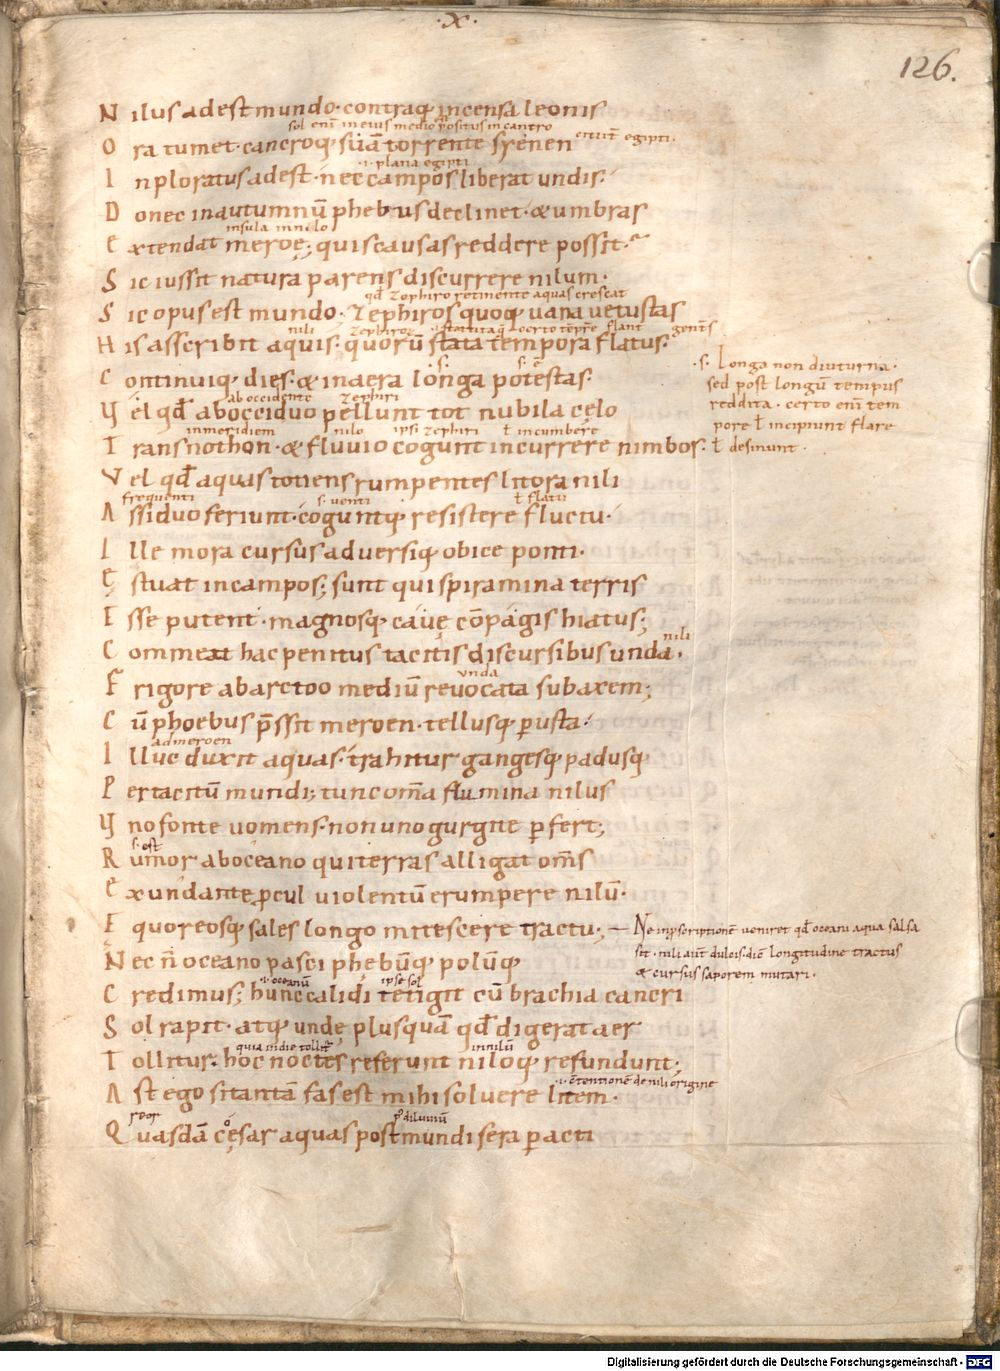 ·X·
126.
Nilus adest mundo· contraq; incensa leonis
sol eni͂ in eius medio positus in cancro
Ora tumet· cancroq; sua͂ torrente syenen
ciuit͂ egipti·
Inploratus adest· nec campos liberat undis·
·i· plana egipti
Donec in autumnu͂ phebus declinet· & umbras
insula in nilo
Extendat meroe; quis causas reddere possit·
Sic iussit natura parens discurrere nilum·
qđ zephiro retinente aquas crescat
Sic opus est mundo; Zephiros quoq; uana uetustas
nili zephiroꝝ statuta q̨ certo te͂pre flant gentes
His asscribit aquis· quoru͂ stata tempora flatus·
Continuiq; dies· & in aera longa potestas·
·s· Longa non diuturna·
sed post longu͂ tempus
reddita· certo eni͂ tem
pore ł incipiunt flare
ł desinunt·
ab occidente zephiri
Vel qđ ab occiduo pellunt tot nubila cęlo
in meridiem nilo ipsi zephiri ł incumbere
Trans nothon· & fluuio cogunt incurrere nimbos·
Vel qđ aquas totiens rumpentes litora nili
frequenti s· uenti ł flatu
Assiduo feriunt· coguntq; resistere fluctu·
Ille mora cursus aduersiq; obice ponti·
Ęstuat in campos; sunt qui spiramina terris
Esse putent· magnosq; cauę co͂pagis hiatus;
nili
Commeat hac penitus tacitis discursibus unda·
unda
Frigore ab arctoo mediu͂ reuocata sub axem;
Cu͂ phoebus p̄ssit meroen· tellusq; ꝑusta·
ad meroen
Illuc duxit aquas· trahitur gangesq; padusq;
Per tacitu͂ mundi; tunc om͂a flumina nilus
Vno fonte uomens· non uno gurgite ꝑfert;
s· est
Rumor ab oceano qui terras alligat om͂s
Exundante ꝓcul uiolentu͂ erumpere nilu͂·
Ęquoreosq; sales longo mitescere tractu;
Ne inp̄scriptione͂ ueniret qđ oceani aqua salsa
sit· nili aut͂ dulcis· dic͂ longitudine tractus
& cursus saporem mutari·
Nec n͂ oceano pasci phebu͂q; polu͂q;
·i· oceanu͂ ipse sol
Credimus; hunc calidi tetigit cu͂ brachia cancri
Sol rapit· atq; undę plus qua͂ qđ digerat aer
quia in die tollit͂ in nilu͂
Tollitur· hoc noctes referunt niloq; refundunt;
·i· c͂tentione͂ de nili origine
Ast ego si tanta͂ fas est mihi soluere litem·
reor p᷒ diluuiu͂
Quasda͂ cęsar aquas post mundi sera ꝑacti
Digitalisierung gefördert durch die Deutsche Forschungsgemeinschaft · DFG